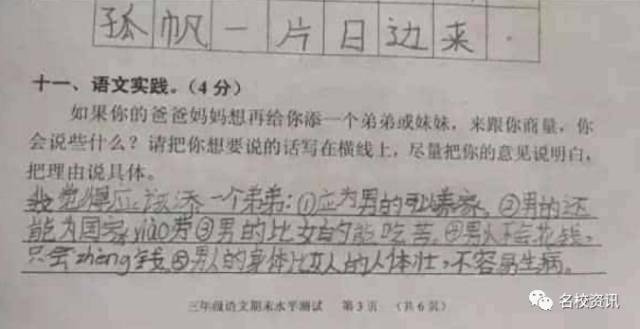 孤帆一片日边来.
十一、语文实践。(4分)
如果你的爸爸妈妈想再给你添一个弟弟或妹妹，来跟你商量，你
会说些什么？请把你想要说的话写在横线上，尽量把你的意见说明白，
把理由说具体。
我觉得应该添一个弟弟：①应为男的可以养家。②男的还
能为国家xiào劳③男的比女的能吃苦。④男人不会花钱，
只会zhèng钱⑤男人的身体比女人的人体壮，不容易生病。
三年级语文期末水平测试 第3页 (共6页)
名校资讯